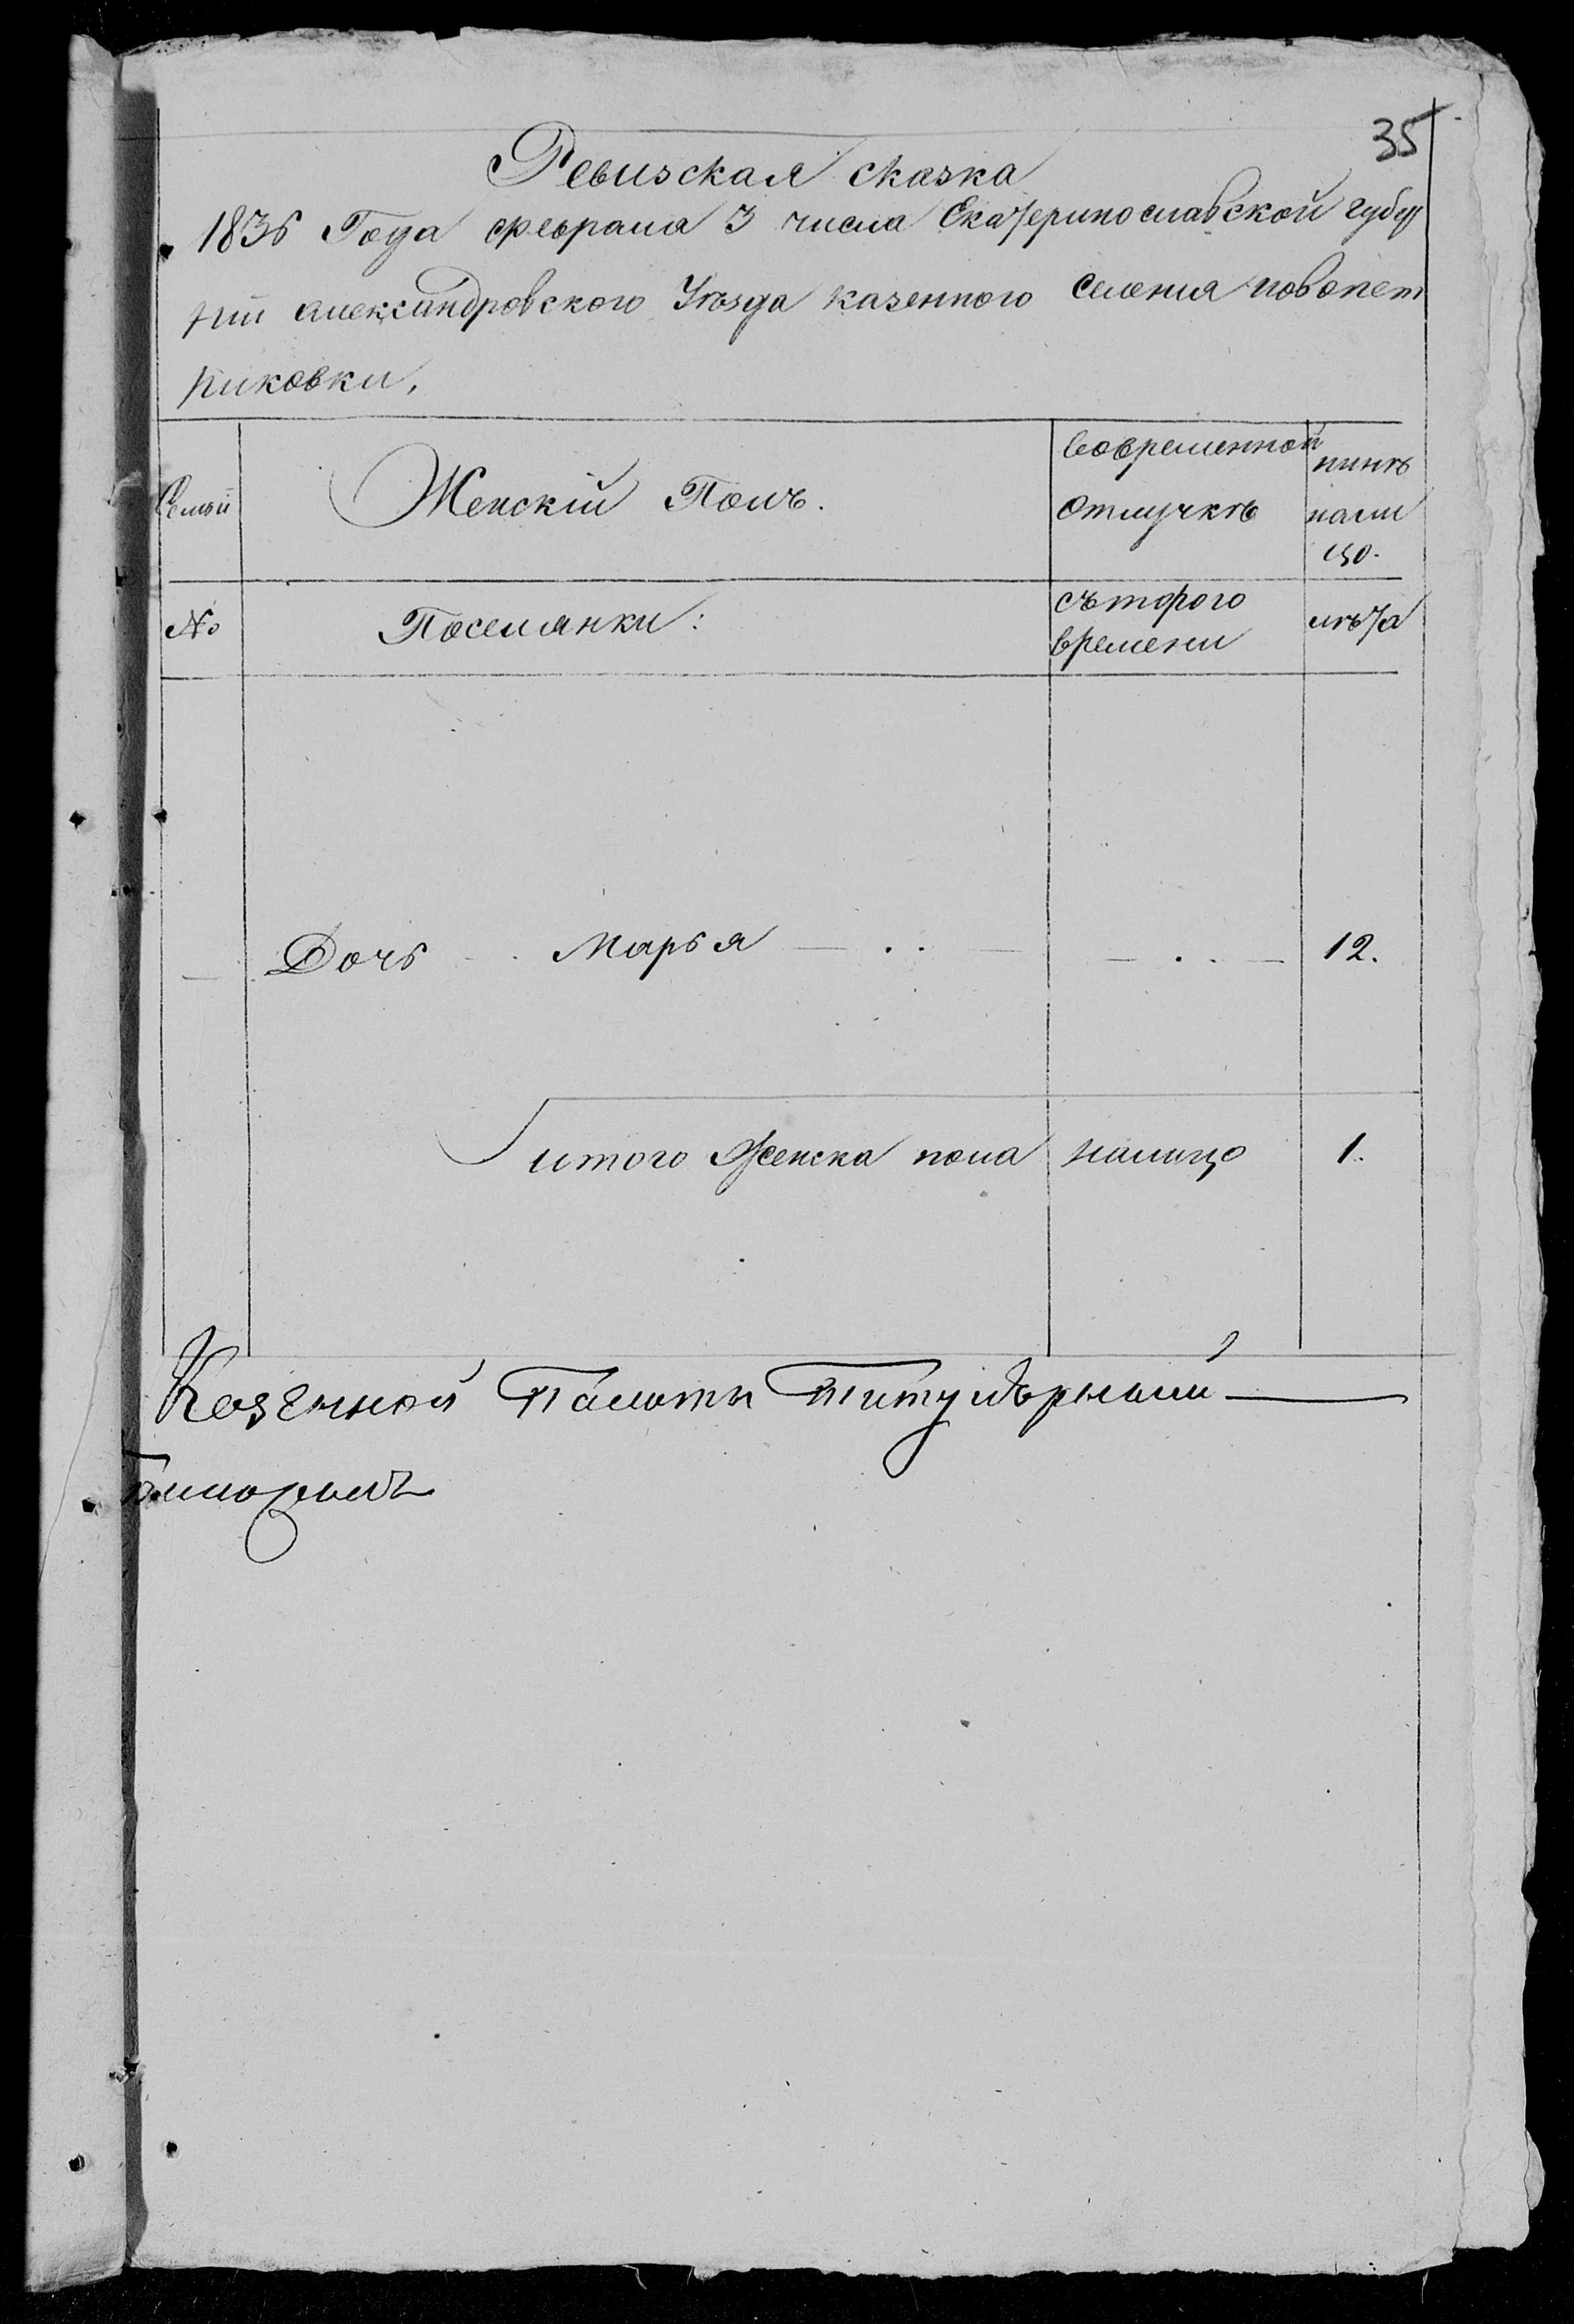 35
Ревизская сказка
1836 Года февраля 3 числа Екатеринославской губер
нии александровского Уѣзда казенного селения новопет
риковки,
Семьи
Женскій Полъ.
вовременной
отлучкѣ
нынѣ
нали
цо.
№
Поселянки:
съ которого
времени
лѣта
Дочь Марья 12.
итого Женска пола налицо 1.
Казенной Палаты Титулярный